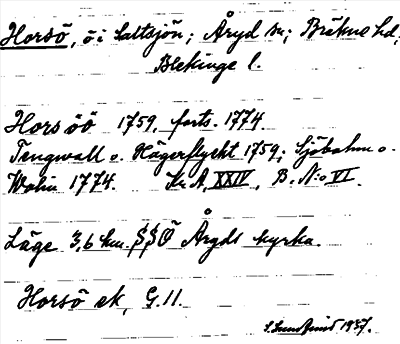 Horsö, ö i Saltsjön; Åryd sn; Bräkne hd,
Blekinge l.
Hors öö 1759, forts. 1774
Tengwall o. Hägerflycht 1759; Sjöbohm o.
Wohn 1774. Kr. A, XXIV, B. N:o VI.
Läge 3,6 km. SSÖ Åryds kyrka.
Horsö ek, G. 11.
S. Sundqvist 1937.